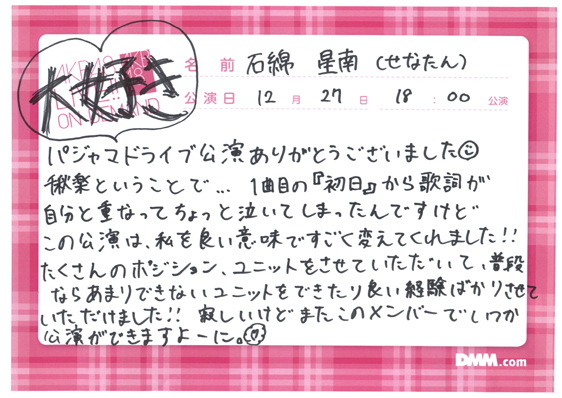 大好き
AKB48
LIVE!!
ON DEMAND
名前 石綿 星南 (せなたん)
公演日 12月 27日 18:00 公演
パジャマドライブ公演ありがとうございました
楸楽ということで… 1曲目の『初日』から歌詞が
自分と重なってちょっと泣いてしまったんですけど
この公演は、私を良い意味ですごく変えてくれました!!
たくさんのポジション、ユニットをさせていただいて、普段
ならあまりできないユニットをできたり良い経験ばかりさせて
いただけました!! 寂しいけどまたこのメンバーでいつか
公演ができますよーに。
DMM.com